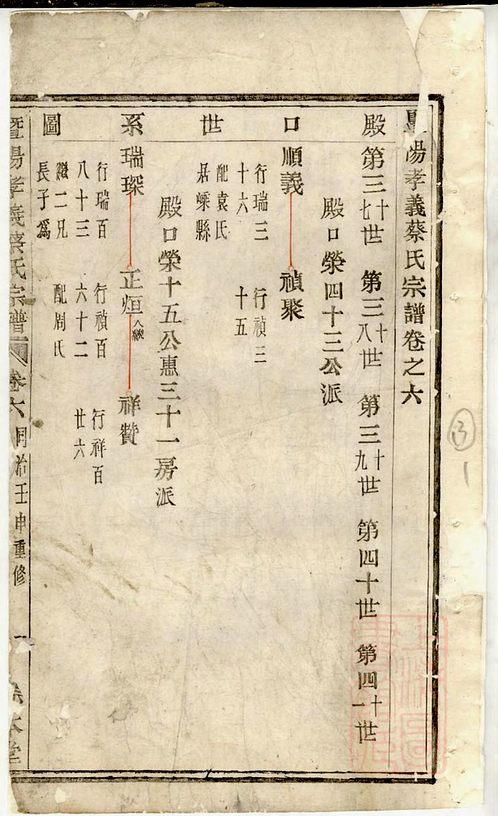 暨陽孝義蔡氏宗譜卷之六
殿 第三十七世 第三十八世 第三十九世 第四十世 第四十一世
殿口榮四十三公派
口 順義 禎聚
行瑞三十六
配袁氏
居嵊縣
行禎三十五
世
殿口榮十五公惠三十一房派
系 瑞琛 正烜入繼 祥贊
行瑞百八十三
繼二兄長子爲
行禎百六十二
配周氏
行祥百廿六
圖
暨陽孝義蔡氏宗譜 卷六 同治壬申重修 一 本堂
③
1